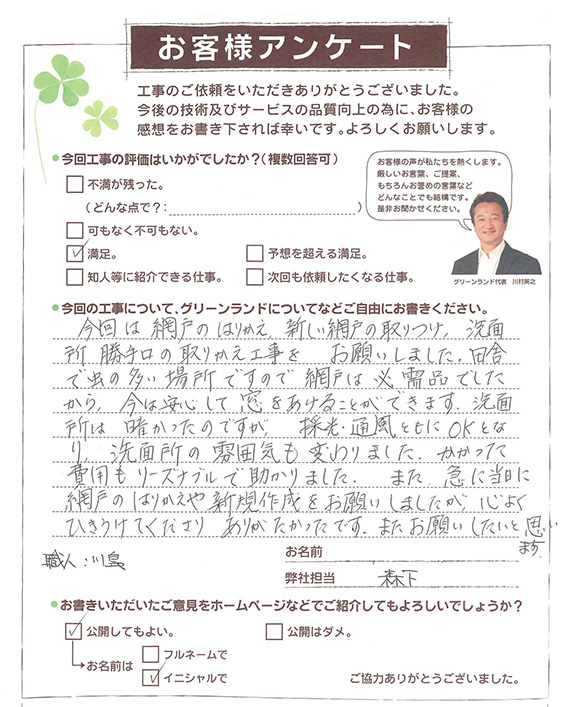 お客様アンケート
工事のご依頼をいただきありがとうございました。
今後の技術及びサービスの品質向上の為に、お客様の
感想をお書き下されば幸いです。よろしくお願いします。
今回工事の評価はいかがでしたか？（複数回答可）
不満が残った。
（どんな点で？：　）
可もなく不可もない。
満足。
予想を超える満足。
知人等に紹介できる仕事。
次回も依頼したくなる仕事。
お客様の声が私たちを熱くします。
厳しいお言葉、ご提案、
もちろんお誉めの言葉など
どんなことでも結構です。
是非お聞かせください。
グリーンランド代表　川村英之
今回の工事について、グリーンランドについてなどご自由にお書きください。
今回は網戸のはりかえ、新しい網戸の取りつけ、洗面
所 勝手口の取りかえ工事を お願いしました。田舎
で虫の多い場所ですので網戸は必需品でした
から、今は安心して窓をあけることができます。洗面
所は暗かったのですが 採光・通風ともにOKとな
り、洗面所の雰囲気も変わりました。かかった
費用もリーズナブルで助かりました。また、急に当日に
網戸のはりかえや新規作成をお願いしましたが、心よく
ひきうけてくださり ありがたかったです。またお願いしたいと思い
ます。
職人：川島
お名前
弊社担当　森下
お書きいただいたご意見をホームページなどでご紹介してもよろしいでしょうか？
公開してもよい。
公開はダメ。
お名前は
フルネームで
イニシャルで
ご協力ありがとうございました。